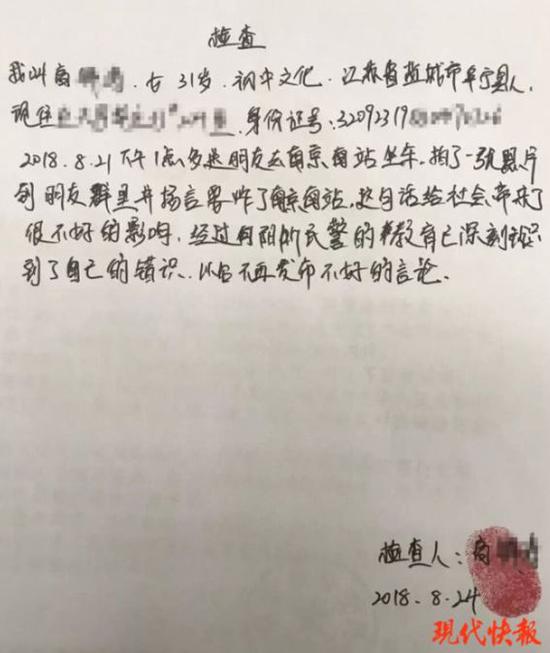 检查
我叫
女 31岁. 初中文化. 江苏省盐城市阜宁县人,
现住 身份证号: 32092319
2018.8.21下午1点多送朋友去南京南站坐车. 拍了一张照片
到朋友群里并扬言要炸了南京南站. 这句话给社会带来了
很不好的影响. 经过向阳所民警的教育已深刻认识
到了自己的错误. 以后不再发布不好的言论.
检查人:
2018.8.24
现代快报